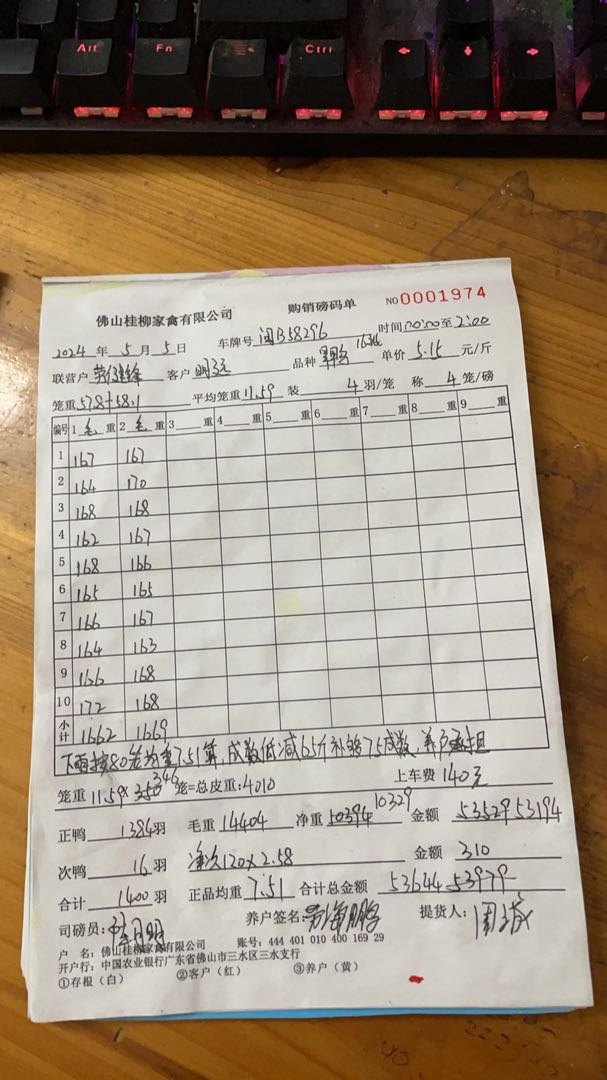 Alt Fn Ctrl
佛山桂柳家禽有限公司 购销磅码单 NO 0001974
2024 年 5 月 5 日 车牌号 闽B58296 时间 00:00 至 2:00
联营户 客户 品种 单价 5.15 元/斤
笼重 57.8+58.1 平均笼重 11.59 装 4 羽/笼 称 4 笼/磅
编号 1 毛 重 2 毛 重 3 重 4 重 5 重 6 重 7 重 8 重 9 重
1 167 167
2 164 170
3 168 168
4 162 167
5 168 166
6 165 165
7 166 167
8 164 163
9 166 168
10 172 168
小计 1662 1669
下雨按80笼均重7.51算,成数低减65斤补够75成数,养户承担
笼重 11.59× 350 346 笼=总皮重: 4010 上车费 140元
正鸭 1384 羽 毛重 14404 净重 10394 10329 金额 53529 53194
次鸭 16 羽 净次120×2.58 金额 310
合计 1400 羽 正品均重 7.51 合计总金额 53644 53979
司磅员: 养户签名: 提货人:
户 名: 佛山桂柳家禽有限公司 账号: 444 401 010 400 169 29
开户行: 中国农业银行广东省佛山市三水区三水支行
①存根(白) ②客户(红) ③养户(黄)